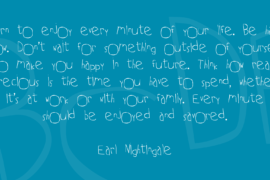 to enjoy every minute of your life. Be
Don't wait for something outside of
to make you happy in the future. Think how
is the time you have to spend, whether
it's at work or with your family. Every minute
should be enjoyed and savored.
Earl Nightingale